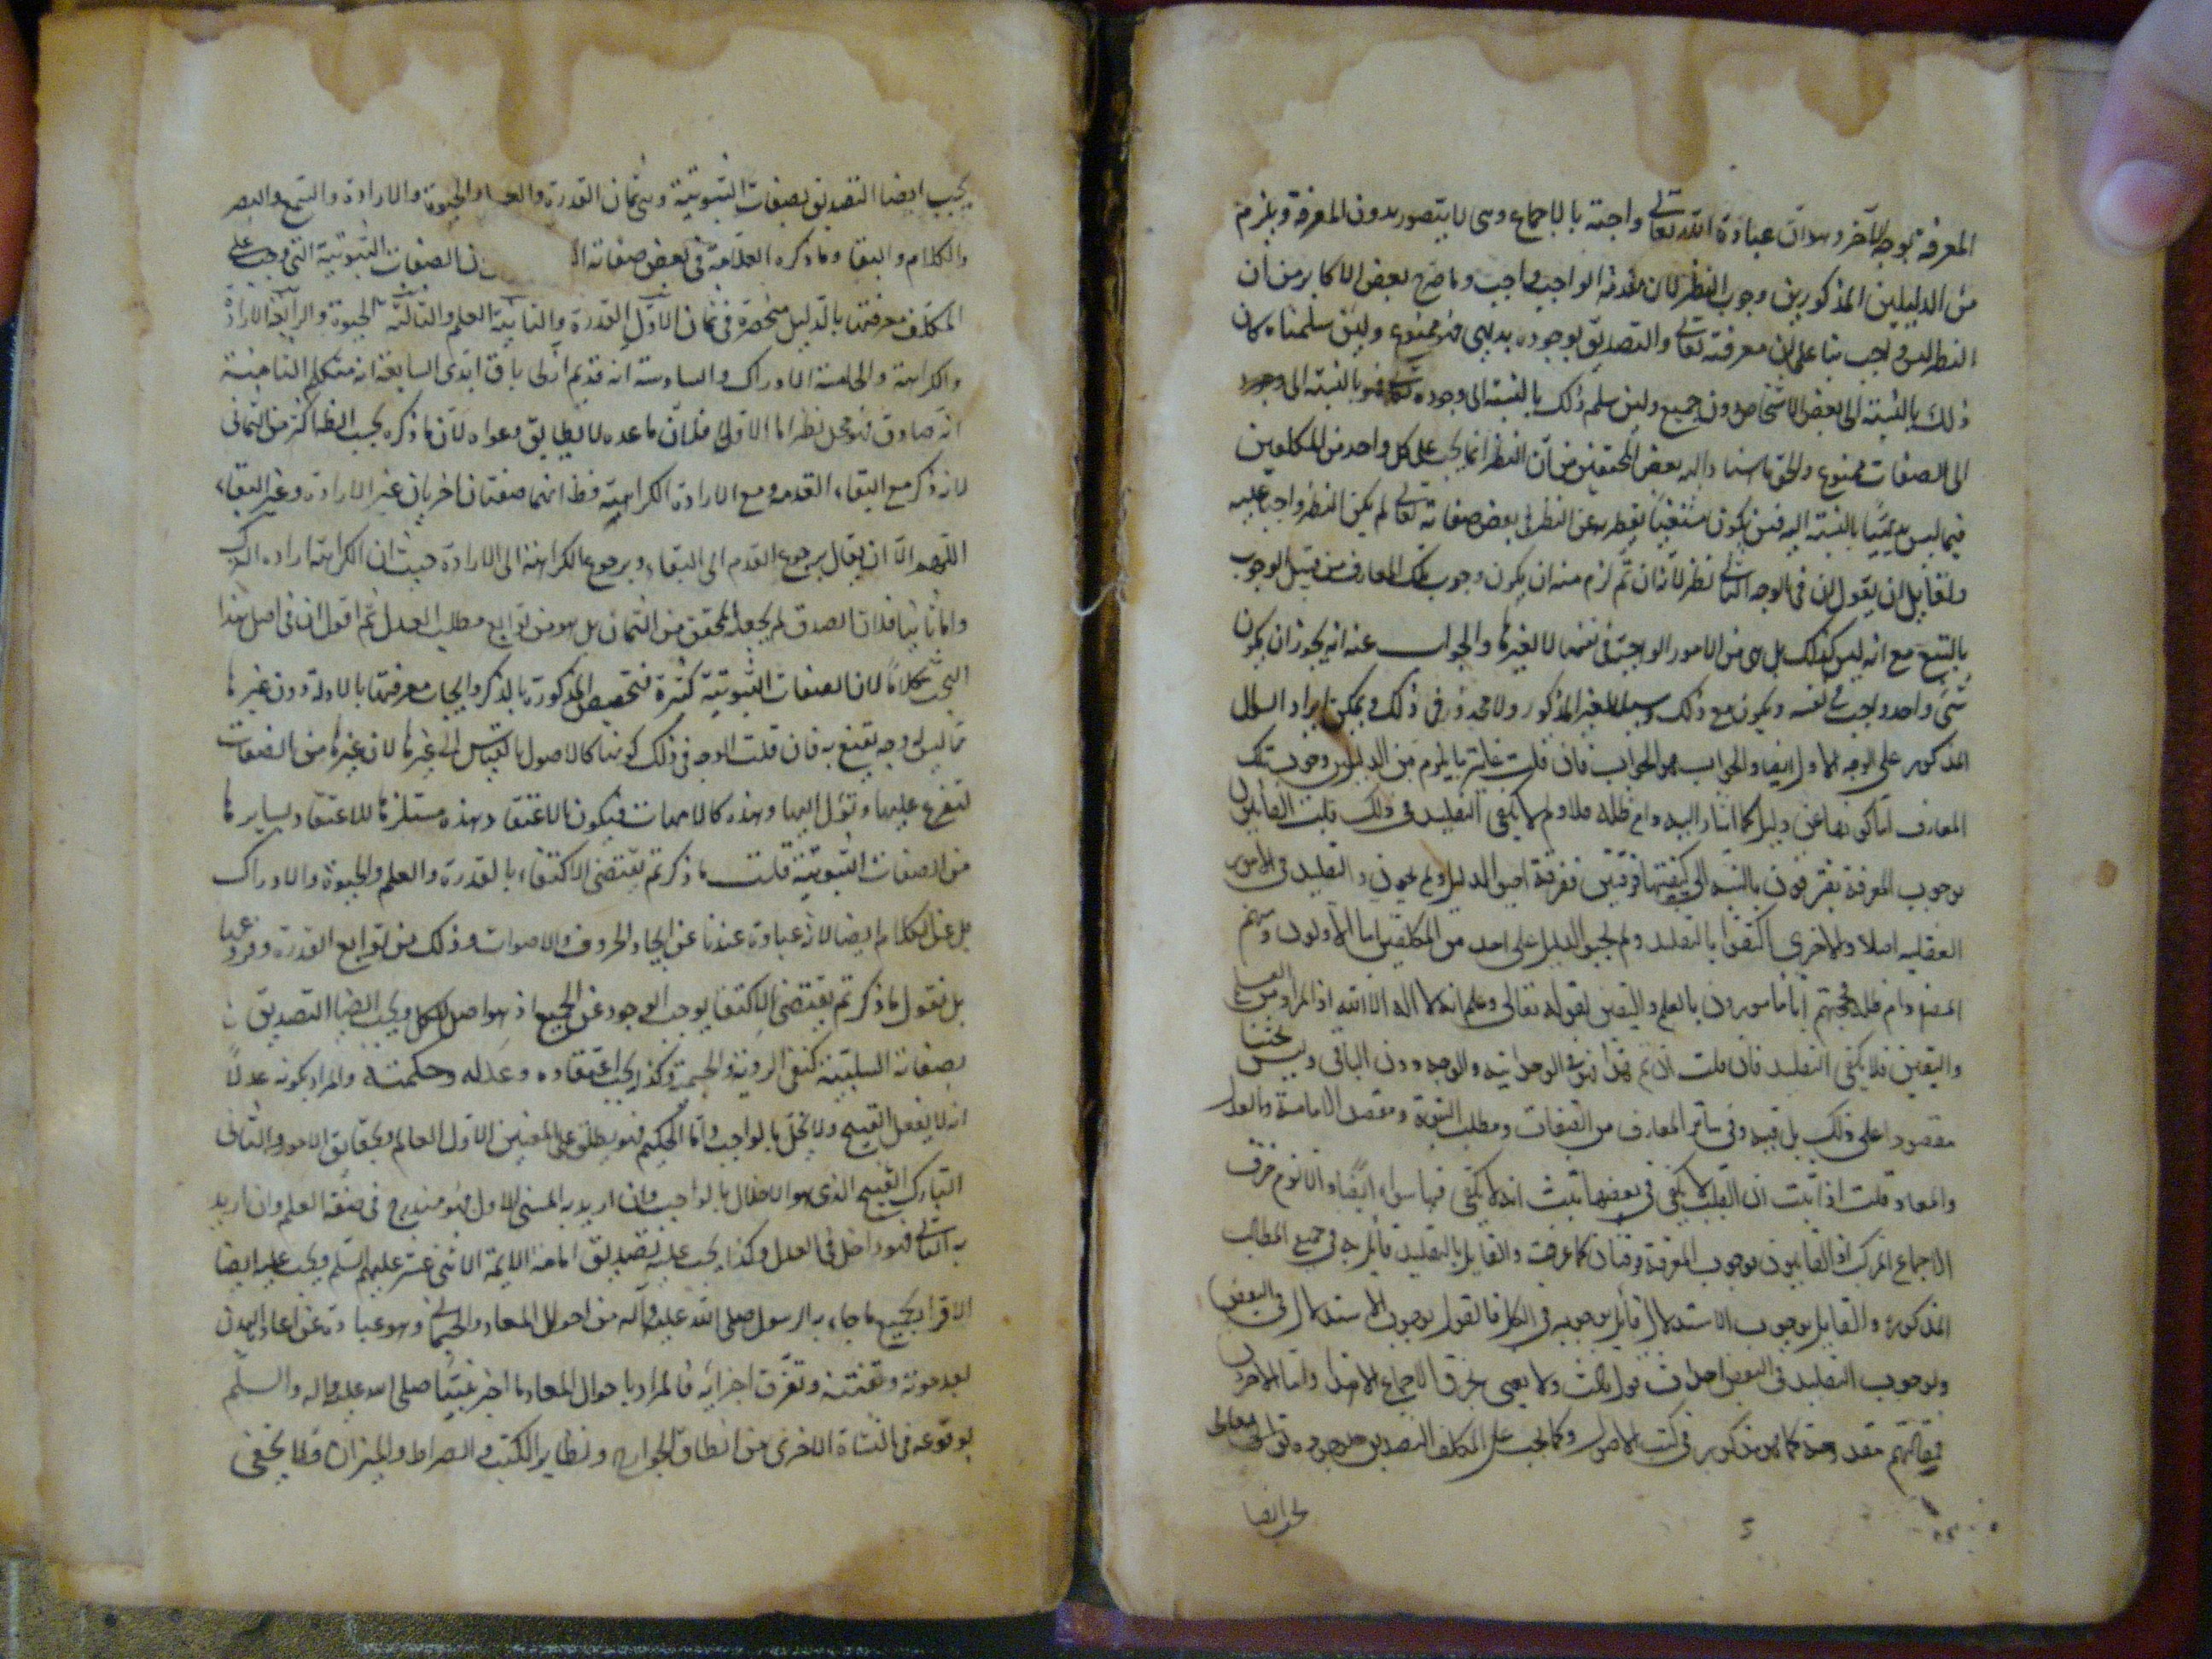 المعرفة بوجه آخر وهو ان عبادة الله تعالى واجبة بالاجماع وهى لا يتصور بدون المعرفة ويلزم
من الدليلين المذكورين وجوب النظر لان مقدمة الواجب واجب وما صرح بعض الاكابر من أن
النظر ليس واجب بناء على ان معرفته تعالى والتصديق بوجوده بديهى فهو ممنوع ولئن سلمناه كان
ذلك بالنسبة الى بعض الاشخاص دون جميع ولئن سلم ذلك بالنسبة الى وجوده تعالى فهو بالنسبة الى وجود
الى الصفات ممنوع والحق ما اليه بعض المحققين من أن النظر انما يجب على كل واحد من المكلفين
فيما ليس بديهيا بالنسبة اليه فمن يكون مستغنيا بفطرته عن النظر فى بعض صفاته تعالى لم يكن النظر واجبا عليه
ولقايل ان يقول ان فى الوجه الثانى نظر لانه ان تم لزم منه ان يكون وجوب تلك المعارف من قبيل الوجوب
بالتبع مع انه ليس كذلك بل هى من الامور الواجبة فى نفسها لا لغيرها والجواب عنه انه يجوز ان يكون
شئ واحد واجب فى نفسه ويكون مع ذلك وسيلة لغير المذكور ولا محذور فى ذلك ويمكن ايراد السؤال
المذكور على الوجه الاول ايضا والجواب هو الجواب فان قلت غاية ما يلزم من الدليلين وجوب تلك
المعارف اما كونها عن دليل كما اشار اليه دام ظله فلا ولم لا يكفى التقليد فى ذلك قلت القايلون
بوجوب المعرفة يفترقون بالنسبة الى كيفيتها فرقتين ففرقة اوجبوا الدليل ولم يجوزوا التقليد فى الامور
العقليه اصلا والاخرى اكتفوا بالتقليد ولم يجبوا الدليل على احد من المكلفين اما الاولون ومنهم
المصنف دام ظله فحجتهم انا مأمورون بالعلم واليقين لقوله تعالى فاعلم انه لا اله الا الله اذ المراد من العلم
واليقين فلا يكفى التقليد فان قلت ان تم هذا فهو فى الوحدانية والوجود دون الباقى وليس بحثنا
مقصورا على ذلك بل فيه وفى سائر المعارف من الصفات ومطلب النبوة ومقصد الامامة والعدل
والمعاد قلت اذا ثبت ان التقليد لا يكفى فى بعضها ثبت انه لا يكفى فيما سواه ايضا والا لزم خرق
الاجماع المركب اذ القايلون بوجوب المعرفة فرقتان كما عرفت والقايل بالتقليد قايل به فى جميع المطالب
المذكورة والقايل بوجوب الاستدلال قايل بوجوبه فى الكل فالقول بوجوب الاستدلال فى البعض
وبوجوب التقليد فى البعض احداث قول ثالث ولا يعنى بخرق الاجماع الا هذا واما الآخرون
فمقالتهم مقدوحة كما هو مذكور فى كتب الاصول وكما يجب على المكلف التصديق بوجوده تعالى
يجب ايضا
يجب ايضا التصديق بصفاته الثبوتية وهى ثمان القدرة والعلم والحيوة والارادة والسمع والبصر
والكلام والبقا وما ذكره العلامة فى بعض صفاته ان الصفات الثبوتية التى وجب على
المكلف معرفتها بالدليل منحصرة فى ثمان الاول القدرة والثانية العلم والثالثة الحيوة والرابعة الارادة
والكراهة والخامسة الادراك والسادسة انه قديم ازلى باق ابدى السابعة انه متكلم الثامنة
انه صادق فهو محل نظر اما الاول فلان ما عده لا يطابق دعواه لان ما ذكره بحسب الظ اكثر من الثمانى
لانه ذكر مع البقاء القدم ومع الارادة الكراهية وظ انهما صفتان اخريان غير الارادة وغير البقاء
اللهم الا ان يقال برجوع القدم الى البقاء وبرجوع الكراهة الى الارادة حيث ان الكراهة ارادة الترك
واما ثانيا فلان الصدق لم يجعله المحقق من الثمان بل هو من توابع مطلب العدل ثم اقول ان فى اصل هذا
البحث كلاما لان الصفات الثبوتية كثيرة فتخصيص المذكورة بالذكر وايجاب معرفتها بالادلة دون غيرها
مما ليس له وجه يقنع به فان قلت الوجه فى ذلك كونها كالاصول بالقياس الى غيرها لان غيرها من الصفات
تتفرع عليها وتؤل اليها وهذه كالامهات فيكون الاعتقاد بهذه مستلزما للاعتقاد بسايرها
من الصفات الثبوتية قلت ما ذكرتم يقتضى الاكتفاء بالقدرة والعلم والحيوة والادراك
بل عن الكلام ايضا لانه عبارة عندنا عن ايجاد الحروف والاصوات وذلك من توابع القدرة وفروعها
بل نقول ما ذكرتم يقتضى الاكتفا بوجوب الوجود عن الجميع اذ هو اصل الكل ويجب ايضا التصديق
بصفاته السلبية كنفى الرؤية والجسمية وكذا يجب اعتقاده وعدله وحكمته والمراد بكونه عدلا
انه لا يفعل القبيح ولا يخل بالواجب واما الحكيم فهو يطلق على المعنيين الاول العالم بحقايق الامور والثانى
التارك القبيح الذى هو الاخلال بالواجب فان اريد به المعنى الاول فهو مندرج فى صفة العلم وان اريد
به الثانى فهو داخل فى العدل وكذا يجب عليه تصديق امامة الايمة الاثنى عشر عليهم السلم ويجب عليه ايضا
الاقرار بجميع ما جاء به الرسول صلى الله عليه وآله من احوال المعاد الجسمانى وهو عبارة عن اعادة البدن
بعد موته وتفتته وتفرق اجزائه فالمراد باحوال المعاد ما اخبر نبينا صلى الله عليه واله والسلم
بوقوعه فى النشاة الاخرى من انطاق الجوارح وتطاير الكتب والصراط والميزان ولا يخفى